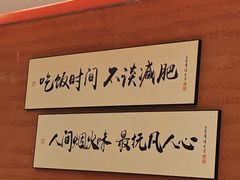 吃饭时间 不谈减肥
人间烟火味 最抚凡人心